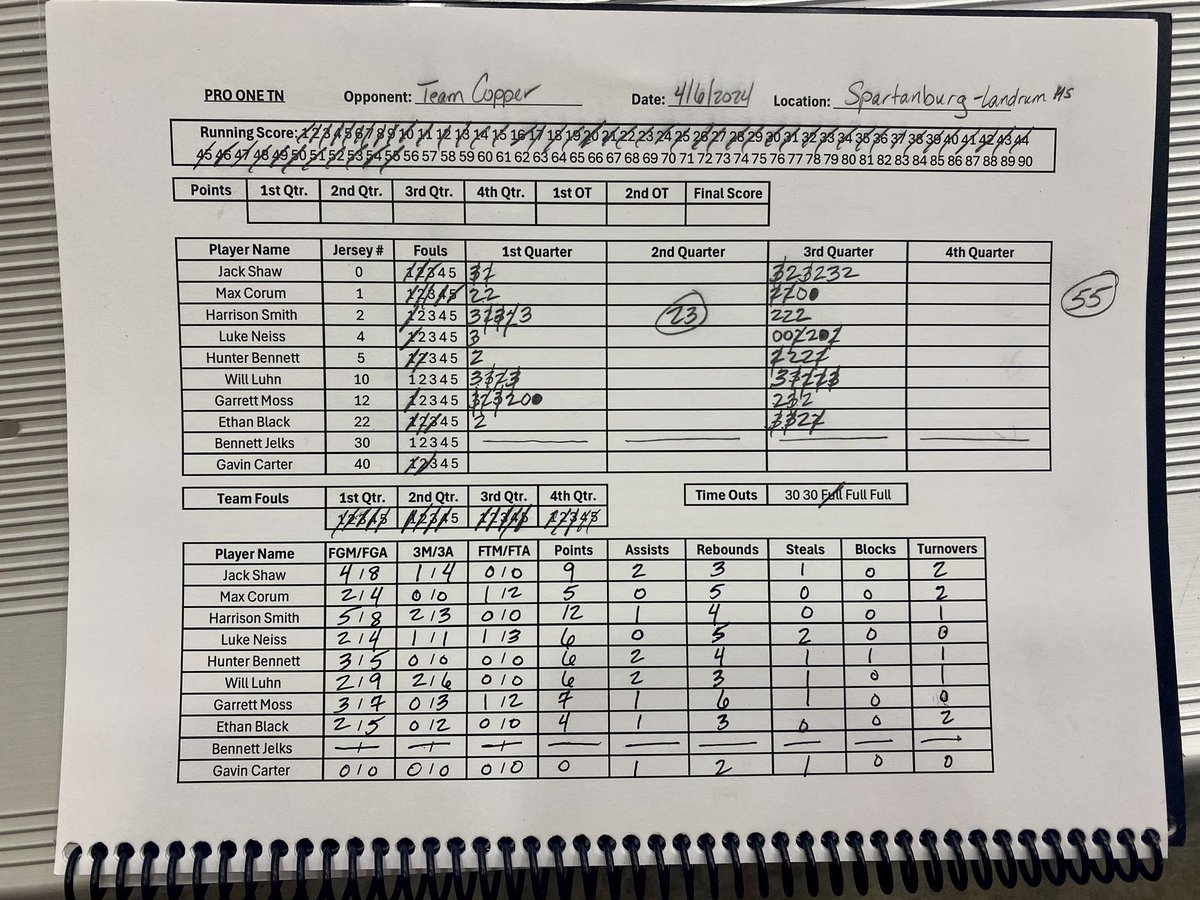 PRO ONE TN Opponent: Team Copper Date: 4/6/2024 Location: Spartanburg-Landrum HS
Running Score: 1 2 3 4 5 6 7 8 9 10 11 12 13 14 15 16 17 18 19 20 21 22 23 24 25 26 27 28 29 30 31 32 33 34 35 36 37 38 39 40 41 42 43 44
45 46 47 48 49 50 51 52 53 54 55 56 57 58 59 60 61 62 63 64 65 66 67 68 69 70 71 72 73 74 75 76 77 78 79 80 81 82 83 84 85 86 87 88 89 90
Points 1st Qtr. 2nd Qtr. 3rd Qtr. 4th Qtr. 1st OT 2nd OT Final Score
Player Name Jersey # Fouls 1st Quarter 2nd Quarter 3rd Quarter 4th Quarter
Jack Shaw 0 1 2 3 4 5 32 323232
Max Corum 1 1 2 3 4 5 22 55
Harrison Smith 2 1 2 3 4 5 23 222
Luke Neiss 4 1 2 3 4 5 3
Hunter Bennett 5 1 2 3 4 5 2 2222
Will Luhn 10 1 2 3 4 5 3323
Garrett Moss 12 1 2 3 4 5 232
Ethan Black 22 1 2 3 4 5 2 3322
Bennett Jelks 30 1 2 3 4 5
Gavin Carter 40 1 2 3 4 5
Team Fouls 1st Qtr. 2nd Qtr. 3rd Qtr. 4th Qtr. Time Outs 30 30 Full Full Full
1 2 3 4 5 1 2 3 4 5 1 2 3 4 5 1 2 3 4 5
Player Name FGM/FGA 3M/3A FTM/FTA Points Assists Rebounds Steals Blocks Turnovers
Jack Shaw 4/8 1/4 0/0 9 2 3 1 0 2
Max Corum 2/4 0/0 1/2 5 0 5 0 0 2
Harrison Smith 5/8 2/3 0/0 12 1 4 0 0 1
Luke Neiss 2/4 1/1 1/3 6 0 5 2 0 0
Hunter Bennett 3/5 0/0 0/0 6 2 4 1 1 1
Will Luhn 2/9 2/6 0/0 6 2 3 1 0 1
Garrett Moss 3/7 0/3 1/2 7 1 6 1 0 0
Ethan Black 2/5 0/2 0/0 4 1 3 0 0 2
Bennett Jelks
Gavin Carter 0/0 0/0 0/0 0 1 2 1 0 0